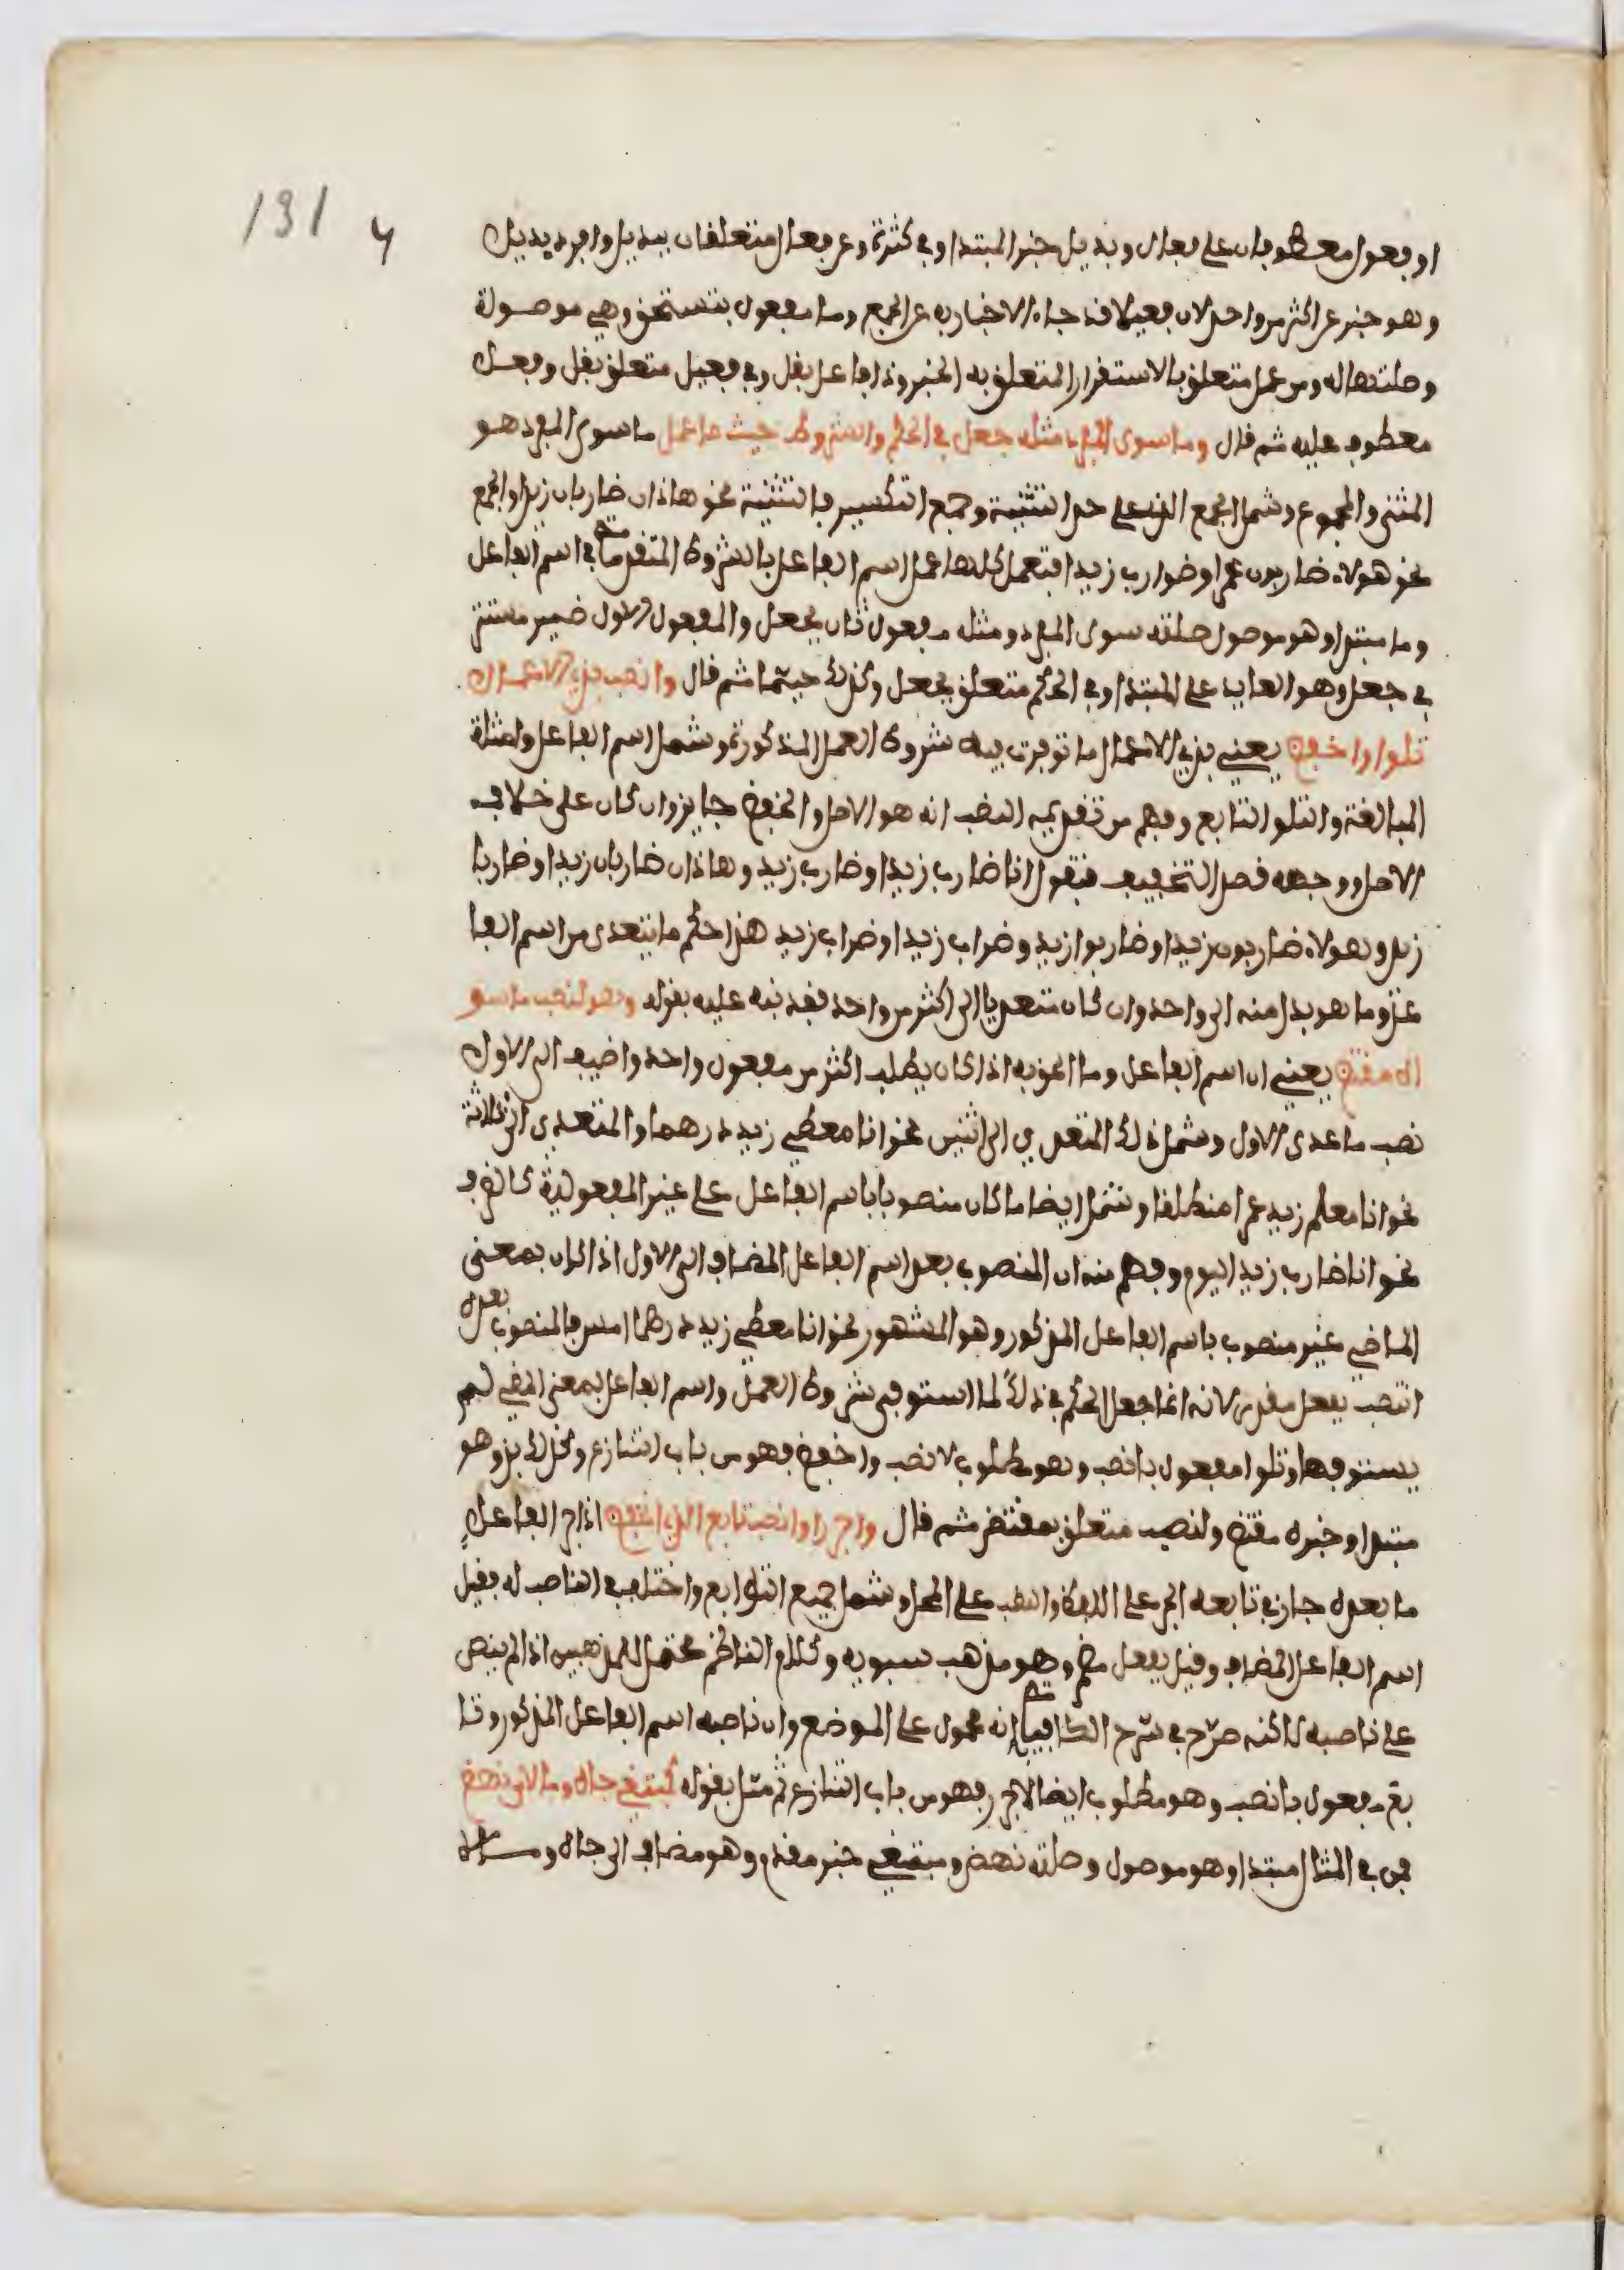 131 4
او فعول معطوفان على فعال وبديل خبر المبتدا وفي كثرة وعن مفعال متعلقان ببديل وافرد بديل
وهو خبر عن اكثر من واحد لان فعيلا قد جاء الاخبار به عن الجمع وما مفعول بيستحق وهي موصولة
وصلتها له ومن عمل متعلق بالاستقرار المتعلق به الخبر وذا فاعل بقل وفي فعيل متعلق بقل وفعل
معطوف عليه ثم قال وما سوى المفرد مثله جعل في الحكم والشروط حيث ما عمل ما سوى المفرد هو
المثنى والمجموع وشمل الجمع الذي على حد التثنية وجمع التكسير فالتثنية نحو هاذان ضاربان زيدا والجمع
نحو هولاء ضاربون عمرا وضوارب زيدا فتعمل كلها عمل اسم الفاعل بالشروط المتقدمة في اسم الفاعل
وما مبتدا وهو موصول صلته سوى المفرد ومثله مفعول ثان بجعل والمفعول الاول ضمير مستتر
في جعل وهو العايد على المبتدا وفي الحكم متعلق بجعل وكذلك حيثما ثم قال وانصب بذي الاعمال
تلوا واخفض يعني بذي الاعمال ما توفرت فيه شروط العمل المذكورة وشمل اسم الفاعل وامثلة
المبالغة والتلو التابع وفهم من تقديمه النصب انه هو الاصل والخفض جايز وان كان على خلاف
الاصل ووجهه قصد التخفيف فتقول انا ضارب زيدا وضارب زيد وهاذان ضاربان زيدا وضاربا
زيد وهولاء ضاربون زيدا وضاربوا زيد وضراب زيدا وضراب زيد هذا حكم ما يتعدى من اسم الفا
عل وما هو بدل منه الى واحد وان كان متعديا الى اكثر من واحد فقد نبه عليه بقوله وهو لنصب ما سو
اه مقتض يعني ان اسم الفاعل وما الحق به اذا كان يطلب اكثر من مفعول واحد واضيف الى الاول
نصب ما عدى الاول وشمل ذلك المتعدي الى اثنين نحو انا معطي زيد درهما والمتعدي الى ثلاثة
نحو انا معلم زيد عمرا منطلقا وشمل ايضا ما كان منصوبا باسم الفاعل على غير المفعولية كالظرف
نحو انا ضارب زيد اليوم وفهم منه ان المنصوب بعد اسم الفاعل المضاف الى الاول اذا كان بمعنى
الماضي غير منصوب باسم الفاعل المذكور وهو المشهور نحو انا معطي زيد درهما امس فالمنصوب بعده
انتصب بفعل مقدر لانه انما جعل الحكم في ذلك لما استوفى شروط العمل واسم الفاعل بمعنى المضي لم
يستوفها وتلوا مفعول بانصب وهو مطلوب لانصب واخفض فهو من باب التنازع وكذلك بذو هو
مبتدا وخبره مقتض ولنصب متعلق بمقتض ثم قال واجرر او انصب تابع الذي انخفض اذا جر الفاعل
ما بعده جاز في تابعه الجر على اللفظ والنصب على المحل وشمل جميع التوابع واختلف في الناصب له فقيل
اسم الفاعل المضاف وقيل بفعل مضمر وهو مذهب سبويه وكلام الناظم محتمل للمذهبين اذ لم ينص
على ناصبه لاكنه صرح في شرح الكافية بانه محمول على الموضع وان ناصبه اسم الفاعل المذكور وتا
بع مفعول بانصب وهو مطلوب ايضا لاجرر فهو من باب التنازع ثم مثل بقوله كمبتغي جاه ومالا من نهض
فمن في المثال مبتدا وهو موصول وصلته نهض ومبتغي خبر مقدم وهو مضاف الى جاه ومالا